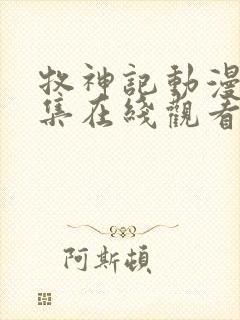 牧神記動漫
集在綫觀看
阿斯頓